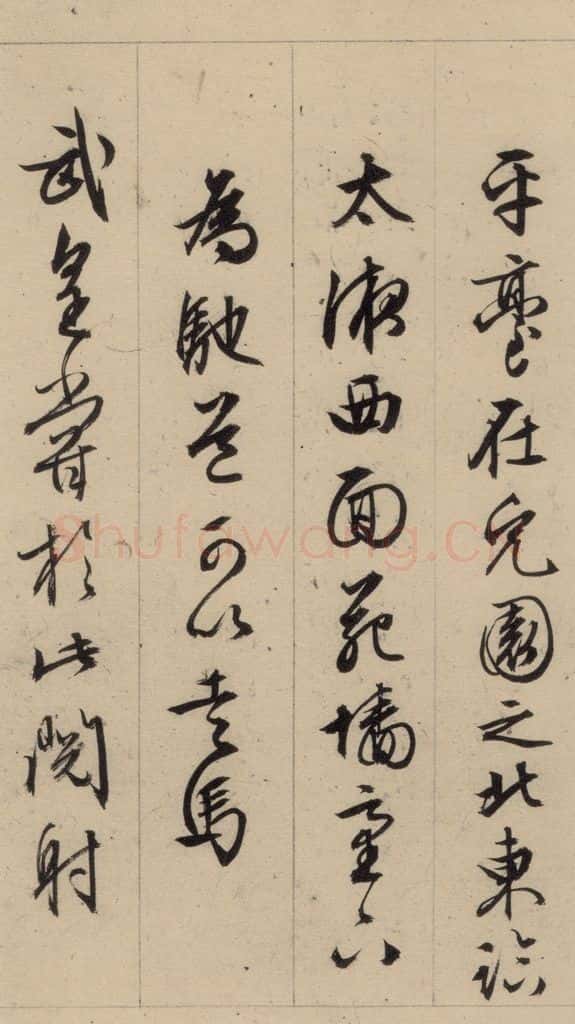 平臺在兔園之北東臨
太液西面苑墻臺下
為馳道可以走馬
武皇嘗於此閱射
Shufawang.cn